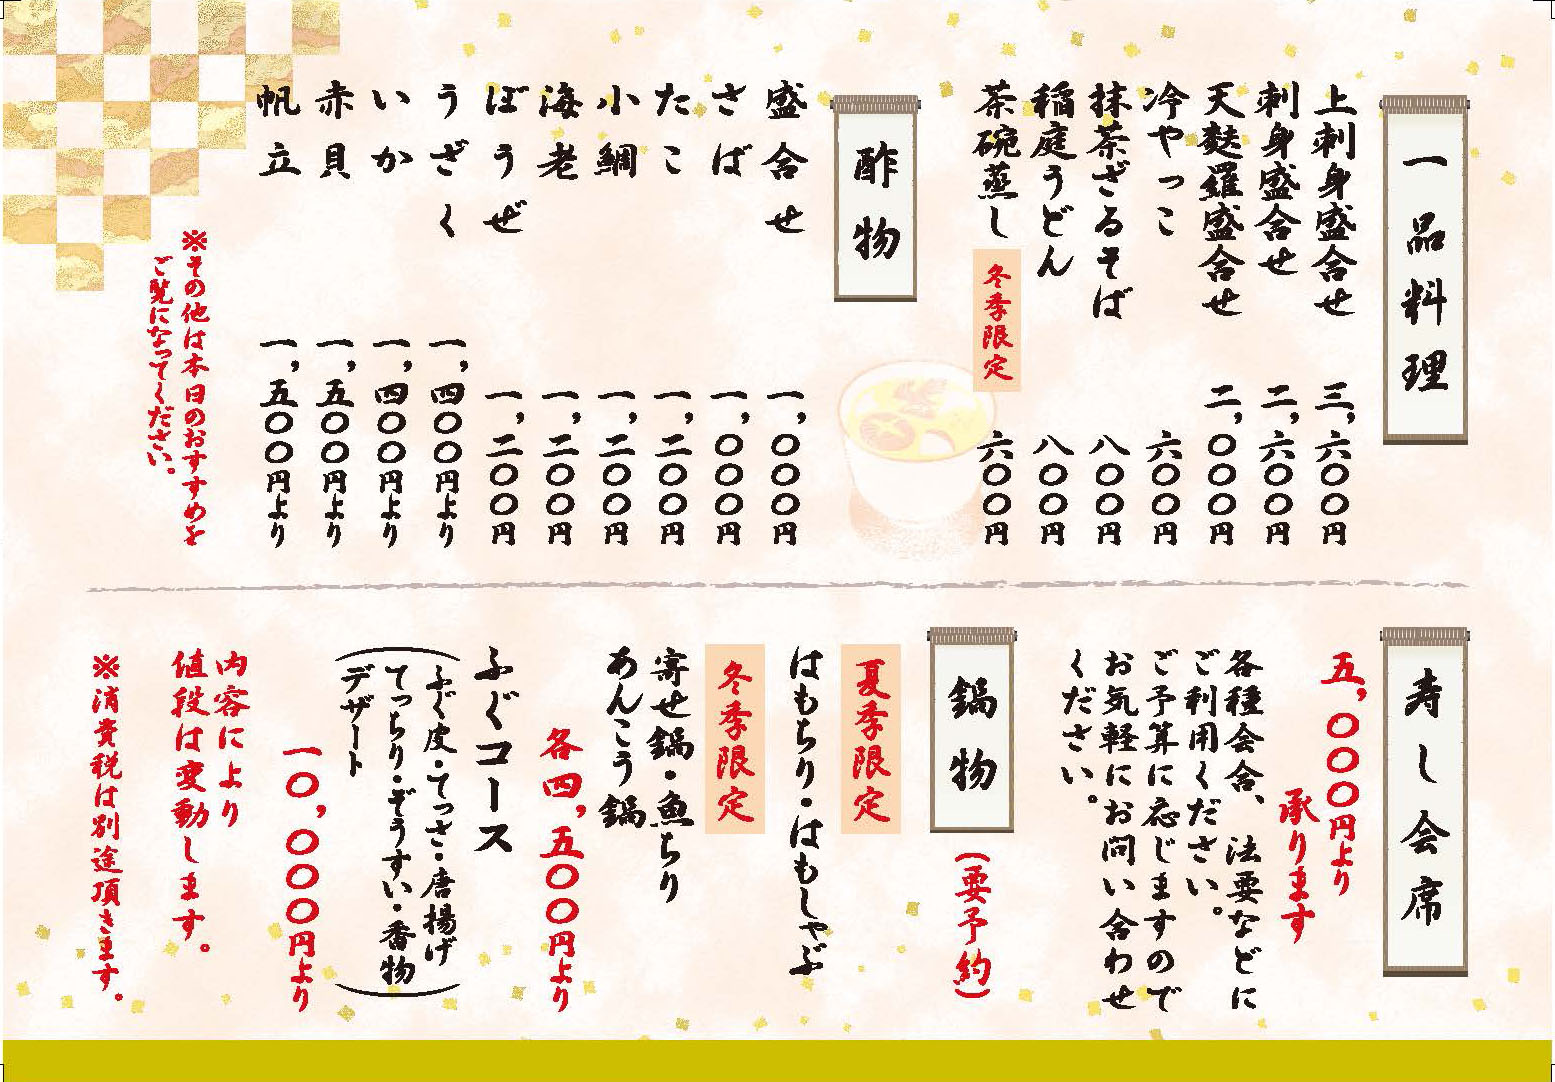 一品料理
上刺身盛合せ 三,六〇〇円
刺身盛合せ 二,六〇〇円
天麩羅盛合せ 二,〇〇〇円
冷やっこ 六〇〇円
抹茶ざるそば 八〇〇円
稲庭うどん 八〇〇円
茶碗蒸し 冬季限定 六〇〇円
酢物
盛合せ 一,〇〇〇円
さば 一,〇〇〇円
たこ 一,二〇〇円
小鯛 一,二〇〇円
海老 一,二〇〇円
ぼうぜ 一,二〇〇円
うざく 一,四〇〇円より
いか 一,四〇〇円より
赤貝 一,五〇〇円より
帆立 一,五〇〇円より
※その他は本日のおすすめを
ご覧になってください。
寿し会席
五,〇〇〇円より
承ります
各種会合、法要などに
ご利用ください。
ご予算に応じますので
お気軽にお問い合わせ
ください。
鍋物
(要予約)
夏季限定
はもちり・はもしゃぶ
冬季限定
寄せ鍋・魚ちり
あんこう鍋
各四,五〇〇円より
ふぐコース
(ふぐ皮・てっさ・唐揚げ
てっちり・ぞうすい・香物
デザート)
一〇,〇〇〇円より
内容により
値段は変動します。
※消費税は別途頂きます。